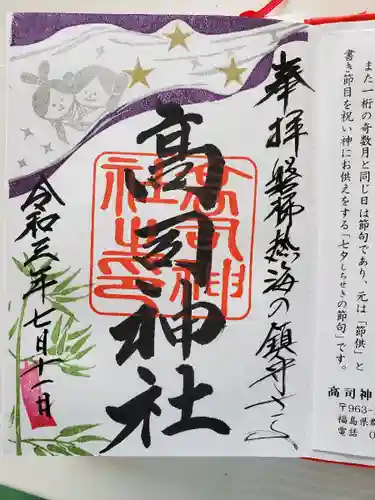 また一桁の奇数月と同じ日は節句であり、元は「節供」と
書き節目を祝い神にお供えをする「七夕しちせきの節句」です。
高司神
〒963-
福島県郡
電話 0
奉拝 磐梯熱海の鎮守さま
高司神社
令和三年七月十一日
高司神社之印